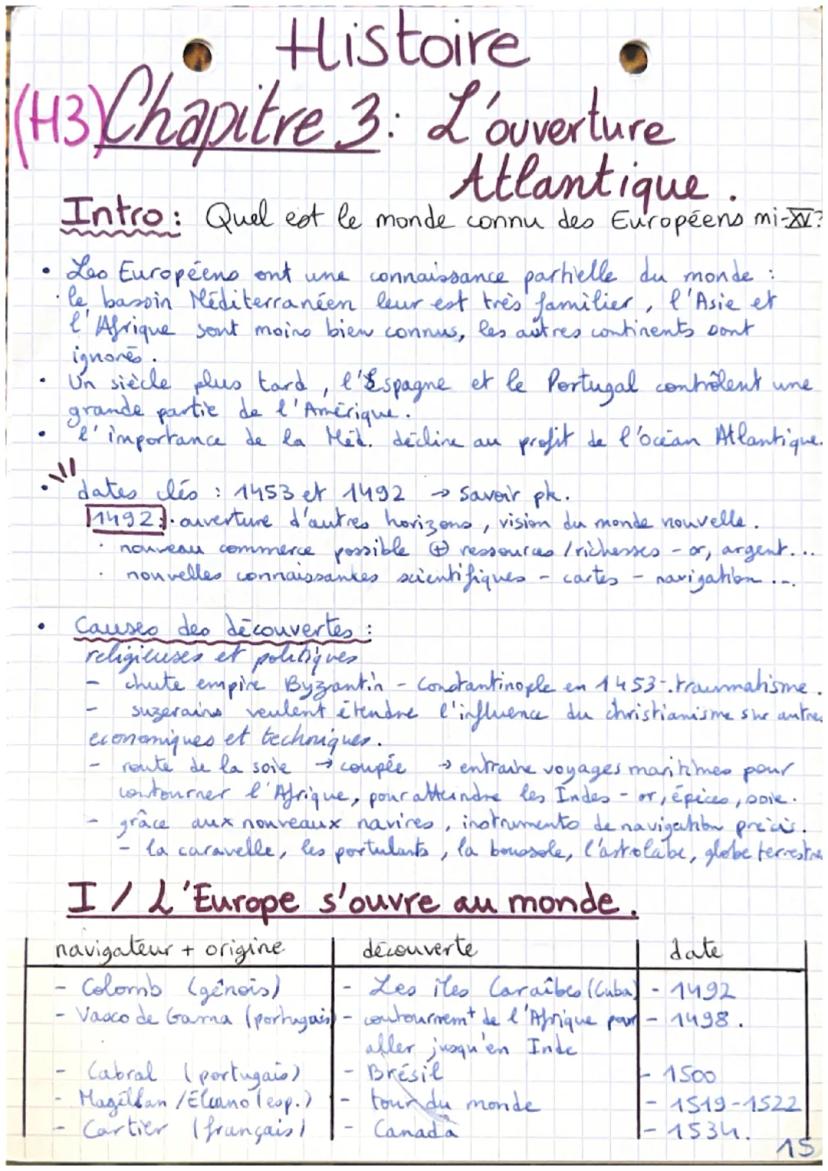 Histoire
(H3) Chapitre 3 : L'ouverture
Atlantique.
Intro : Quel est le monde connu des Européens mi-XV?
• Les Européens ont une connaissance partielle du monde :
· le bassin Méditerranéen leur est très familier, l'Asie et
l'Afrique sont moins bien connus, les autres continents sont
ignorés.
• Un siècle plus tard, l'Espagne et le Portugal contrôlent une
grande partie de l'Amérique.
• l'importance de la Méd. décline au profit de l'océan Atlantique.
• dates clés : 1453 et 1492 → savoir pk.
1492 : · ouverture d'autres horizons, vision du monde nouvelle.
· nouveau commerce possible ⊕ ressources / richesses - or, argent...
· nouvelles connaissantes scientifiques - cartes - navigation ...
• Causes des découvertes :
religieuses et politiques
- chute empire Byzantin - Constantinople en 1453 - traumatisme.
- suzerains veulent étendre l'influence du christianisme sur autres
economiques et techniques.
- route de la soie → coupée → entraine voyages maritimes pour
contourner l'Afrique, pour atteindre les Indes - or, épices, soie.
- grâce aux nouveaux navires, instruments de navigation précis.
- la caravelle, les portulants, la boussole, l'astrolabe, globe terrestre
I / L'Europe s'ouvre au monde.
navigateur + origine découverte date
- Colomb (génois) - Les îles Caraïbes (Cuba) - 1492
- Vasco de Gama (portugais) - contournemt de l'Afrique pour - 1498.
aller jusqu'en Inde
- Cabral (portugais) - Brésil - 1500
- Magellan / Elcano (esp.) - tour du monde - 1519-1522
- Cartier (français) - Canada - 1534.
15